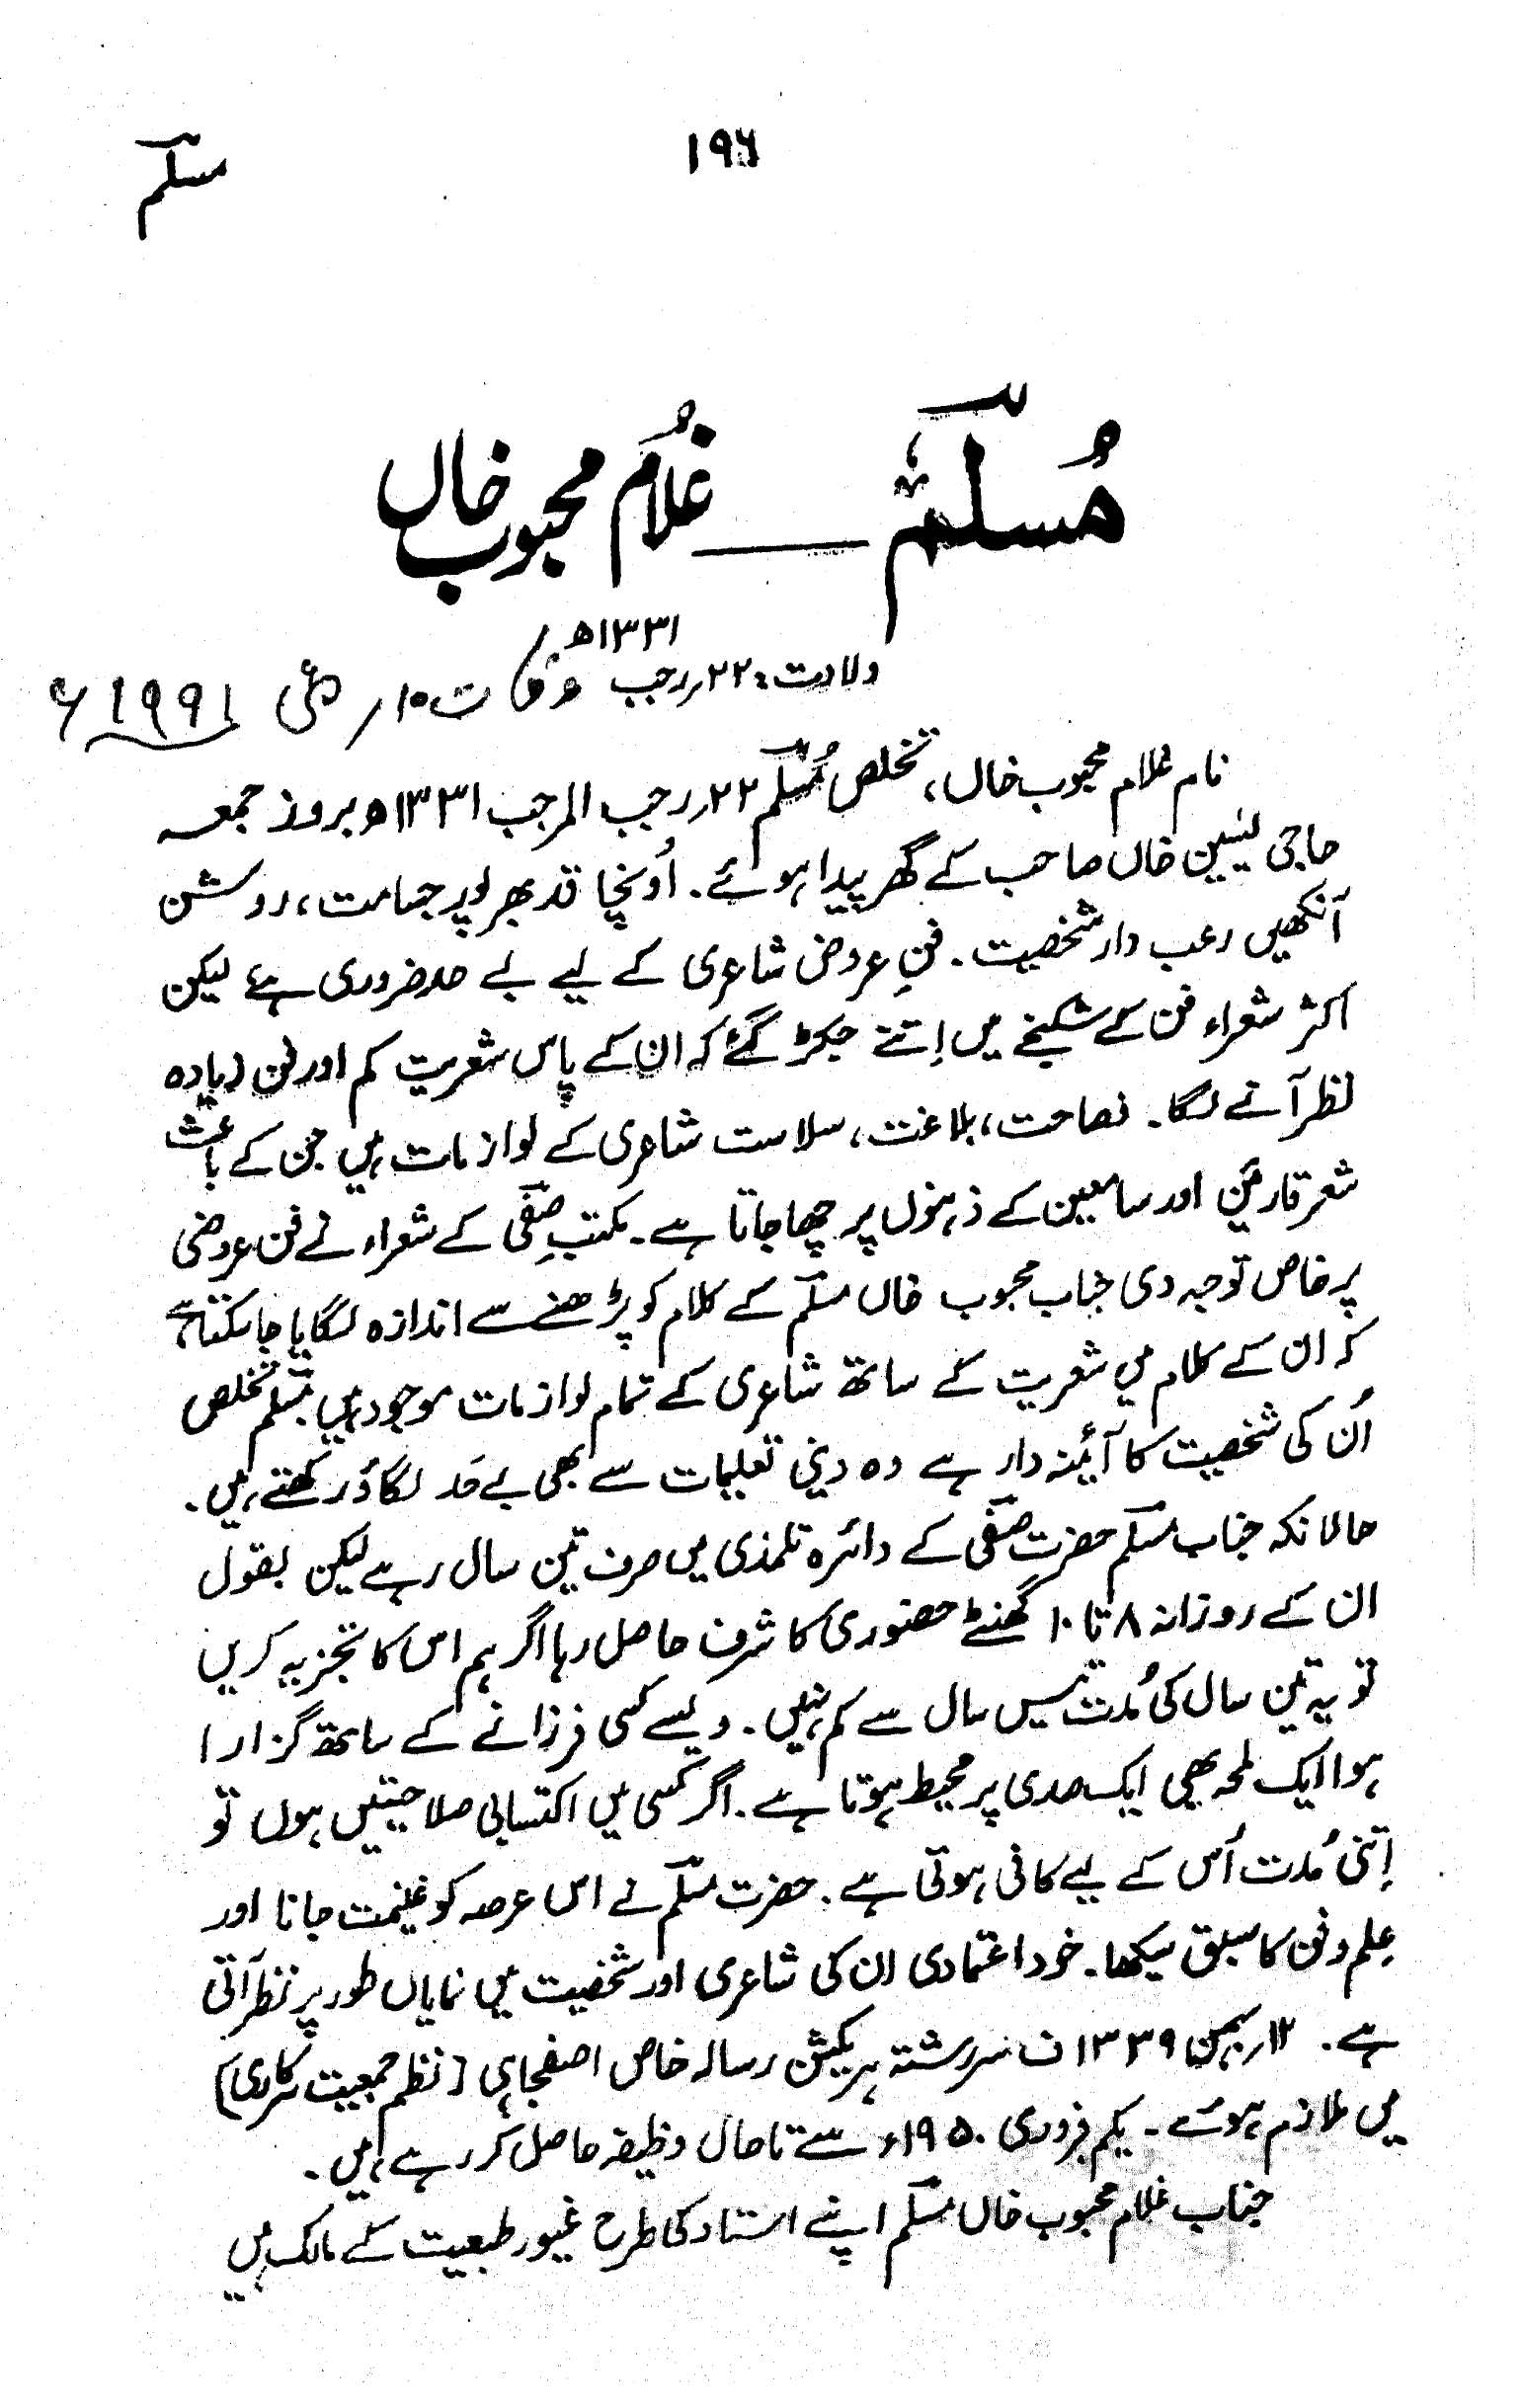 ۱۹۶
مسلّم
مُسلّم ـــ غلام محبوب خاں
ولادت: ۲۲؍رجب ۱۳۳۱ھ وفات ۱۰؍ مئی ۱۹۹۱ء
نام غلام محبوب خاں، تخلص مُسلّم ۲۲؍رجب المرجب ۱۳۳۱ھ بروز جمعہ
حاجی یٰسین خاں صاحب کے گھر پیدا ہوئے۔ اُونچا قد بھرپور جسامت، روشن
آنکھیں رعب دار شخصیت۔ فنِ عروض شاعری کے لیے بے حد ضروری ہے لیکن
اکثر شعراء فن کے شکنجے میں اِتنے جکڑ گئے کہ ان کے پاس شعریت کم اور فن زیادہ
نظر آنے لگا۔ فصاحت، بلاغت، سلاست شاعری کے لوازمات ہیں جن کے باعث
شعر قارئین اور سامعین کے ذہنوں پر چھا جاتا ہے۔ مکتبِ صفیؔ کے شعراء نے فن عروض
پر خاص توجہ دی جناب محبوب خاں مسلّم کے کلام کو پڑھنے سے اندازہ لگایا جا سکتا ہے
کہ ان کے کلام میں شعریت کے ساتھ شاعری کے تمام لوازمات موجود ہیں مسلّم تخلص
اُن کی شخصیت کا آئینہ دار ہے وہ دینی تعلیمات سے بھی بے حد لگاؤ رکھتے ہیں۔
حالانکہ جناب مسلّم حضرت صفیؔ کے دائرہ تلمذی میں صرف تین سال رہے لیکن بقول
ان کے روزانہ ۸ تا ۱۰ گھنٹے حضوری کا شرف حاصل رہا اگر ہم اس کا تجزیہ کریں
تو یہ تین سال کی مُدت تیس سال سے کم نہیں۔ ویسے کسی فرزانے کے ساتھ گزارا
ہوا ایک لمحہ بھی ایک صدی پر محیط ہوتا ہے۔ اگر کسی میں اکتسابی صلاحیتیں ہوں تو
اِتنی مُدت اُس کے لیے کافی ہوتی ہے۔ حضرت مسلّم نے اس عرصہ کو غنیمت جانا اور
عِلم و فن کا سبق سیکھا۔ خود اعتمادی ان کی شاعری اور شخصیت میں نمایاں طور پر نظر آتی
ہے۔ ۱۲؍بہمن ۱۳۳۹ ف سررشتہ ہریکش رسالہ خاص اصفجاہی [نظم جمعیت سرکاری)
میں ملازم ہوئے۔ یکم فروری ۱۹۵۰ء سے تا حال وظیفہ حاصل کر رہے ہیں۔
جناب غلام محبوب خاں مسلّم اپنے استاد کی طرح غیور طبعیت کے مالک ہیں